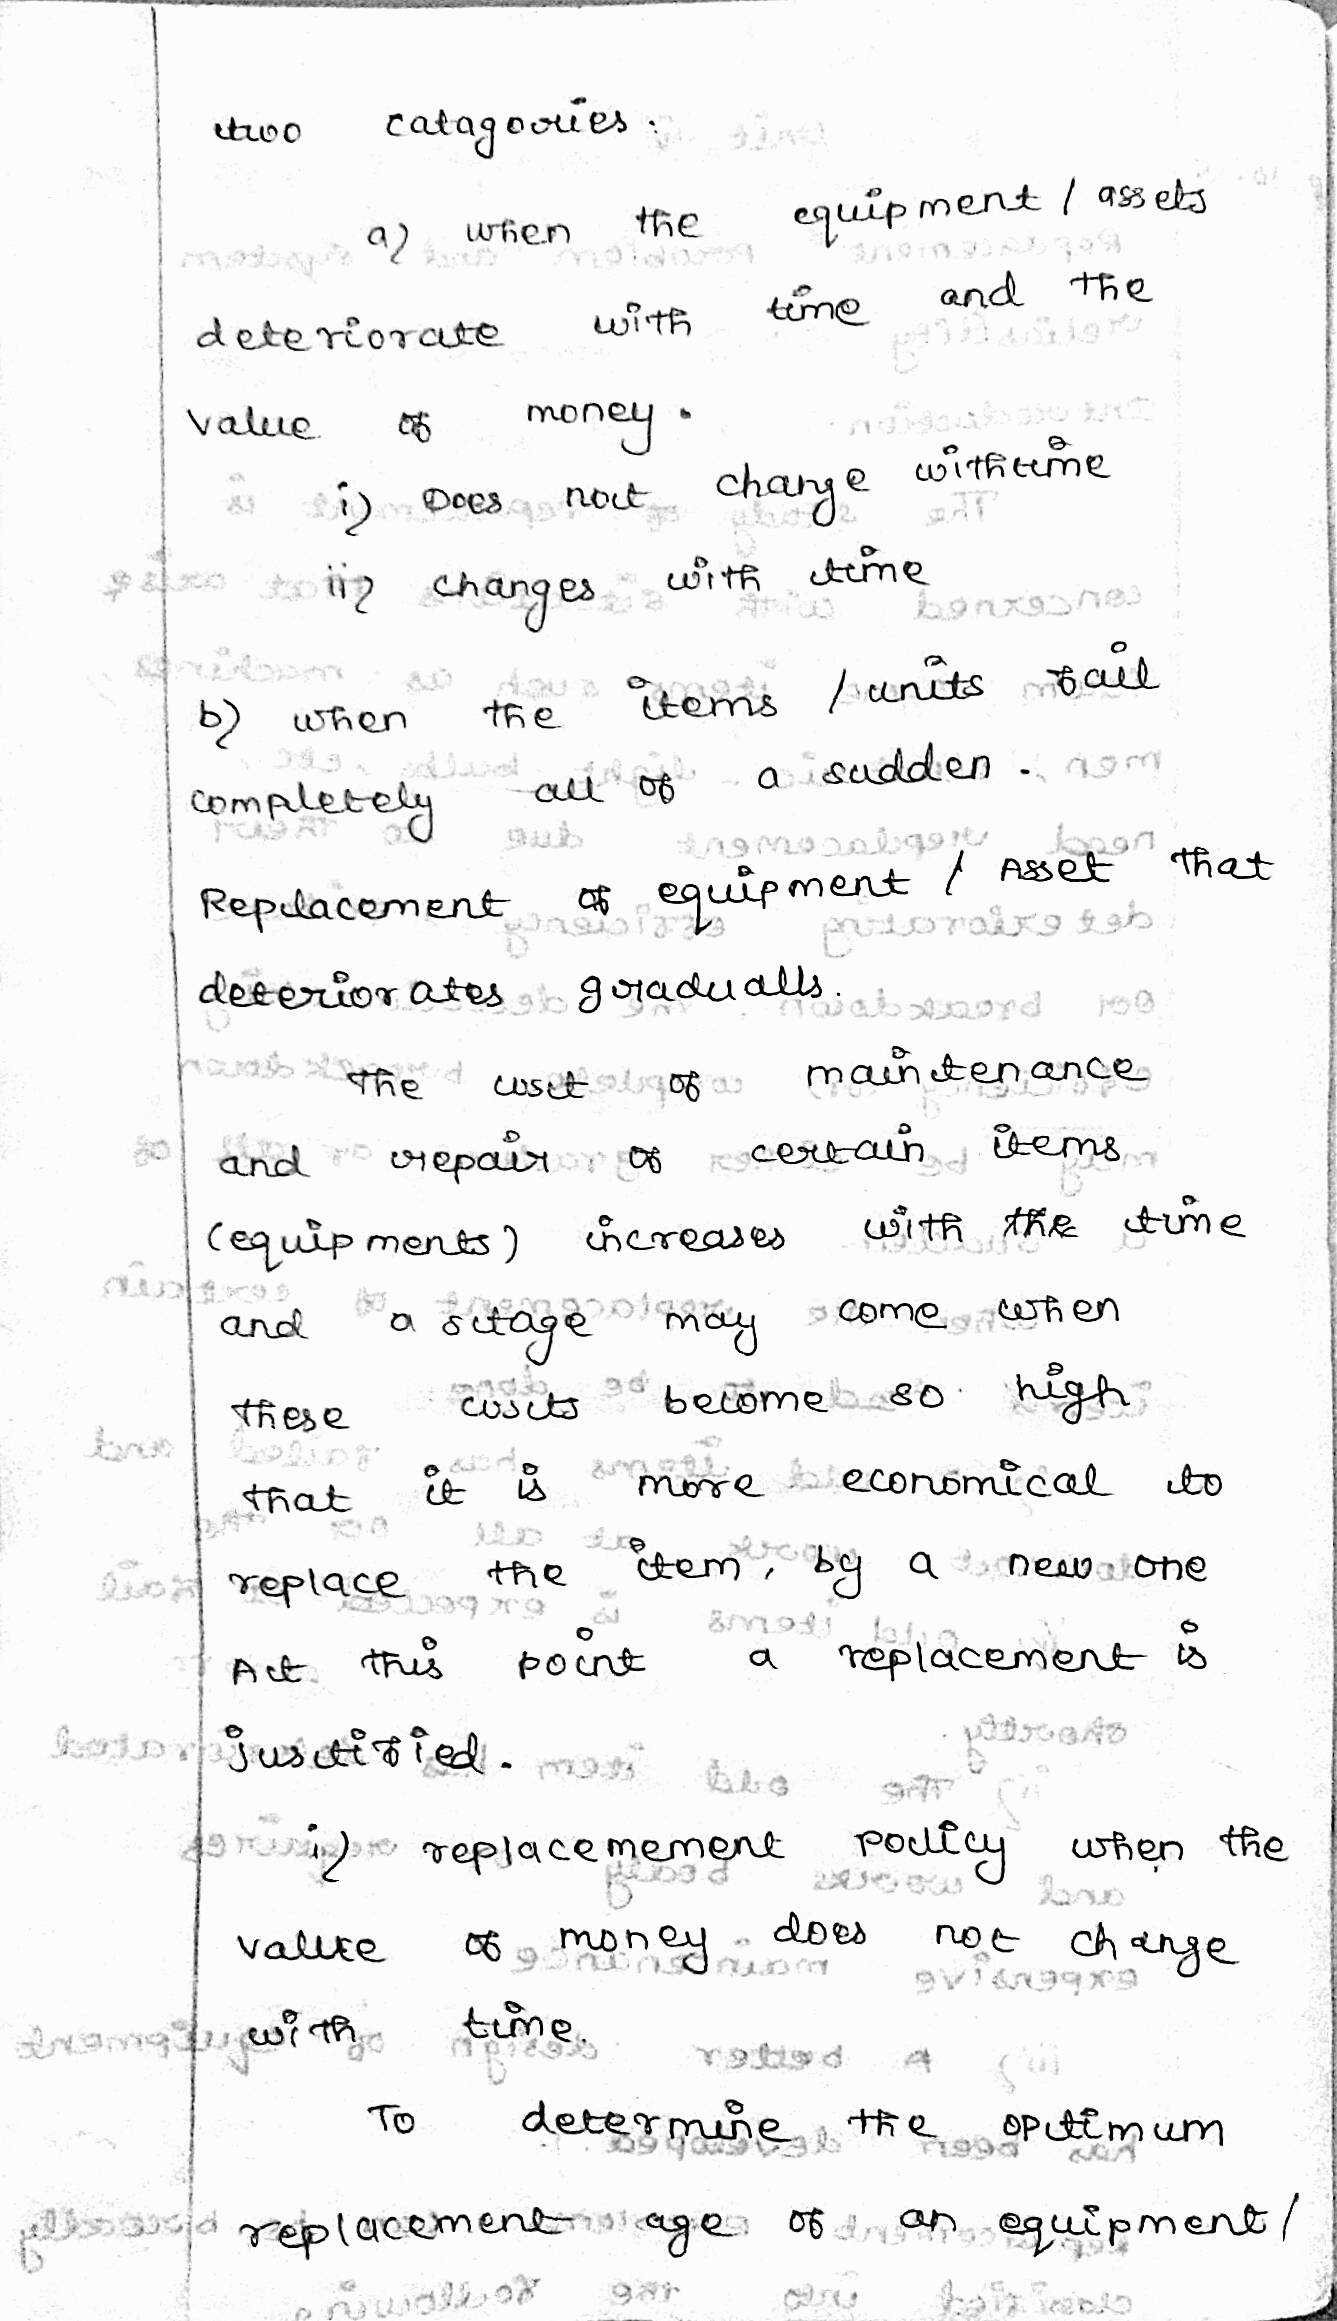 two catagories.
a) when the equipment / assets
deteriorate with time and the
value of money.
i) Does not change withtime
ii) changes with time
b) when the items / units fail
completely all of a sudden.
Replacement of equipment / Asset that
deteriorates gradualls.
The cost of maintenance
and repair of certain items
(equipments) increases with the time
and a stage may come when
these costs become so high
that it is more economical to
replace the item, by a new one
At this point a replacement is
justified.
i) replacemement policy when the
value of money does not change
with time.
To determine the optimum
replacement age of an equipment /